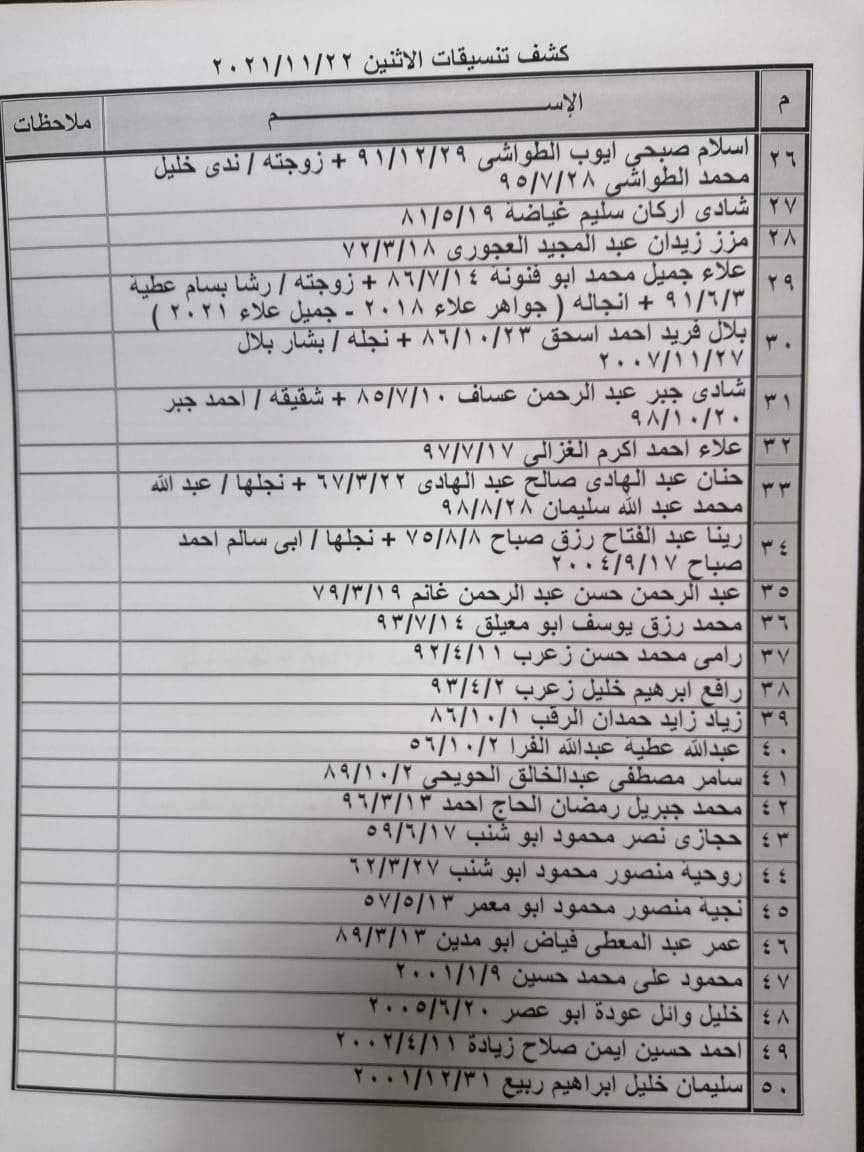 كشف تنسيقات الاثنين ٢٠٢١/١١/٢٢
م الإســـــــم ملاحظات
٢٦ اسلام صبحى ايوب الطواشى ٩١/١٢/٢٩ + زوجته / ندى خليل
محمد الطواشى ٩٥/٧/٢٨
٢٧ شادى اركان سليم غياضة ٨١/٥/١٩
٢٨ مزز زيدان عبد المجيد العجورى ٧٢/٣/١٨
٢٩ علاء جميل محمد ابو فنونة ٨٦/٧/١٤ + زوجته / رشا بسام عطية
٩١/٦/٣ + انجاله ( جواهر علاء ٢٠١٨ - جميل علاء ٢٠٢١ )
٣٠ بلال فريد احمد اسحق ٨٦/١٠/٢٣ + نجله / بشار بلال
٢٠٠٧/١١/٢٧
٣١ شادى جبر عبد الرحمن عساف ٨٥/٧/١٠ + شقيقه / احمد جبر
٩٨/١٠/٢٠
٣٢ علاء احمد اكرم الغزالى ٩٧/٧/١٧
٣٣ حنان عبد الهادى صالح عبد الهادى ٦٧/٣/٢٢ + نجلها / عبد الله
محمد عبد الله سليمان ٩٨/٨/٢٨
٣٤ رينا عبد الفتاح رزق صباح ٧٥/٨/٨ + نجلها / ابى سالم احمد
صباح ٢٠٠٤/٩/١٧
٣٥ عبد الرحمن حسن عبد الرحمن غانم ٧٩/٣/١٩
٣٦ محمد رزق يوسف ابو معيلق ٩٣/٧/١٤
٣٧ رامى محمد حسن زعرب ٩٢/٤/١١
٣٨ رافع ابرهيم خليل زعرب ٩٣/٤/٢
٣٩ زياد زايد حمدان الرقب ٨٦/١٠/١
٤٠ عبدالله عطية عبدالله الفرا ٥٦/١٠/٢
٤١ سامر مصطفى عبدالخالق الحويحى ٨٩/١٠/٢
٤٢ محمد جبريل رمضان الحاج احمد ٩٦/٣/١٣
٤٣ حجازى نصر محمود ابو شنب ٥٩/٦/١٧
٤٤ روحية منصور محمود ابو شنب ٦٢/٣/٢٧
٤٥ نجية منصور محمود ابو معمر ٥٧/٥/١٣
٤٦ عمر عبد المعطى فياض ابو مدين ٨٩/٣/١٣
٤٧ محمود على محمد حسين ٢٠٠١/١/٩
٤٨ خليل وائل عودة ابو عصر ٢٠٠٥/٦/٢٠
٤٩ احمد حسين ايمن صلاح زيادة ٢٠٠٢/٤/١١
٥٠ سليمان خليل ابراهيم ربيع ٢٠٠١/١٢/٣١